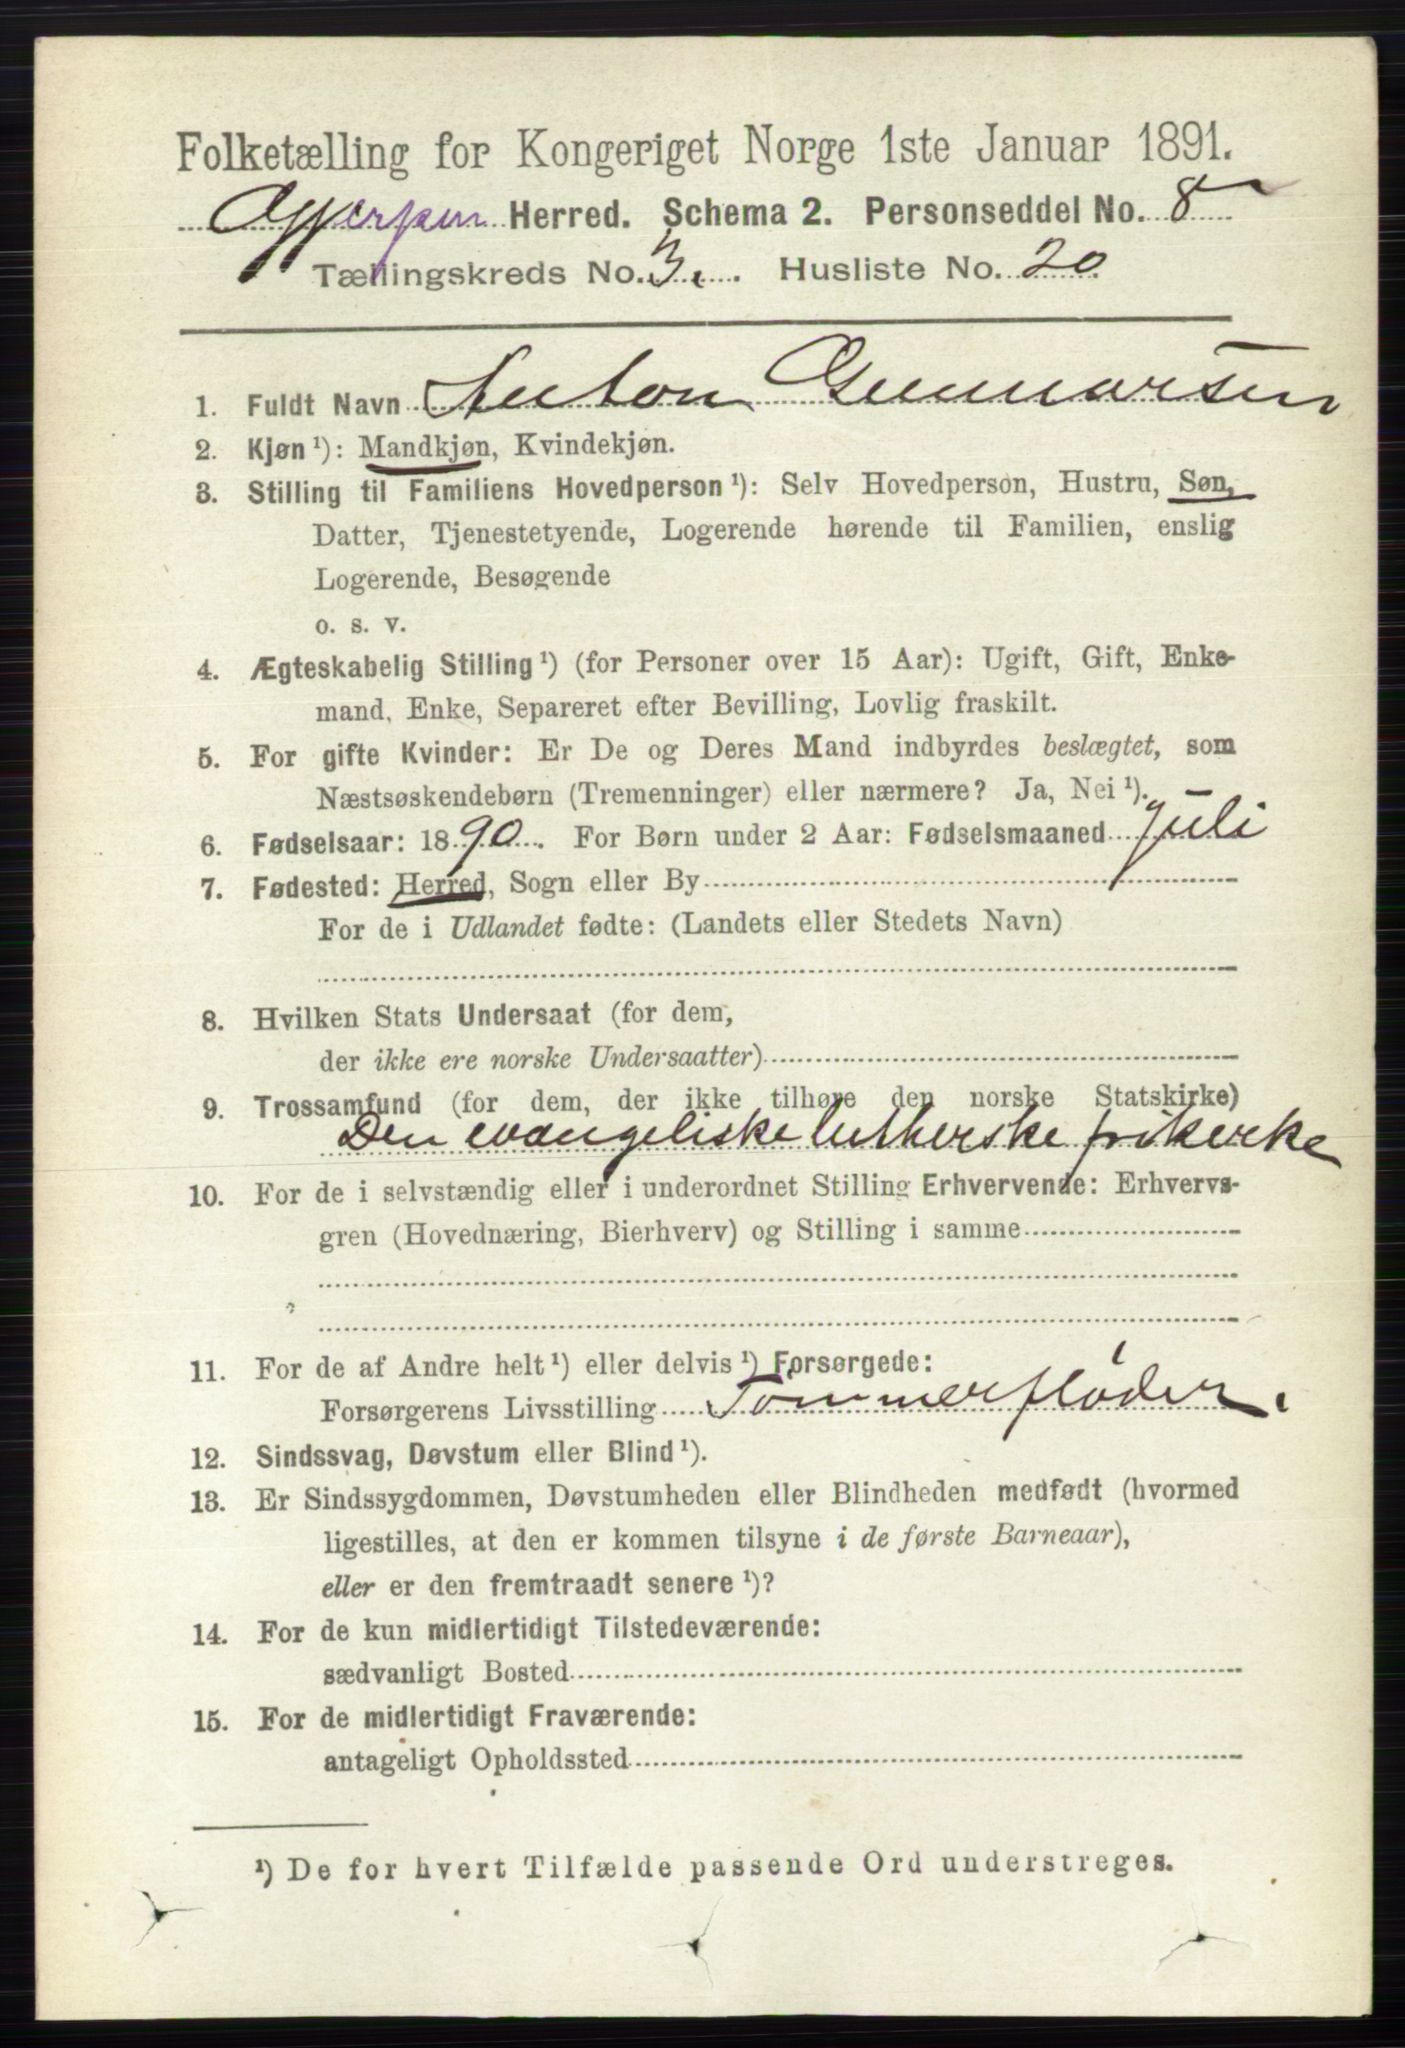 Folketælling for Kongeriget Norge 1ste Januar 1891.
Gjerpen Herred. Schema 2. Personseddel No. 8
Tællingskreds No. 3. Husliste No. 20
1. Fuldt Navn Anton Gunnarsen
2. Kjøn¹): Mandkjøn, Kvindekjøn.
3. Stilling til Familiens Hovedperson¹): Selv Hovedperson, Hustru, Søn,
Datter, Tjenestetyende, Logerende hørende til Familien, enslig
Logerende, Besøgende
o. s. v.
4. Ægteskabelig Stilling¹) (for Personer over 15 Aar): Ugift, Gift, Enke-
mand, Enke, Separeret efter Bevilling, Lovlig fraskilt.
5. For gifte Kvinder: Er De og Deres Mand indbyrdes beslægtet, som
Næstsøskendebørn (Tremenninger) eller nærmere? Ja, Nei¹).
6. Fødselsaar: 1890. For Børn under 2 Aar: Fødselsmaaned Juli
7. Fødested: Herred, Sogn eller By
For de i Udlandet fødte: (Landets eller Stedets Navn)
8. Hvilken Stats Undersaat (for dem,
der ikke ere norske Undersaatter)
9. Trossamfund (for dem, der ikke tilhøre den norske Statskirke)
Den evangeliske lutherske frikirke
10. For de i selvstændig eller i underordnet Stilling Erhvervende: Erhvervs-
gren (Hovednæring, Bierhverv) og Stilling i samme
11. For de af Andre helt¹) eller delvis¹) Forsørgede:
Forsørgerens Livsstilling Tømmerfløder.
12. Sindssvag, Døvstum eller Blind¹).
13. Er Sindssygdommen, Døvstumheden eller Blindheden medfødt (hvormed
ligestilles, at den er kommen tilsyne i de første Barneaar),
eller er den fremtraadt senere¹)?
14. For de kun midlertidigt Tilstedeværende:
sædvanligt Bosted
15. For de midlertidigt Fraværende:
antageligt Opholdssted
¹) De for hvert Tilfælde passende Ord understreges.